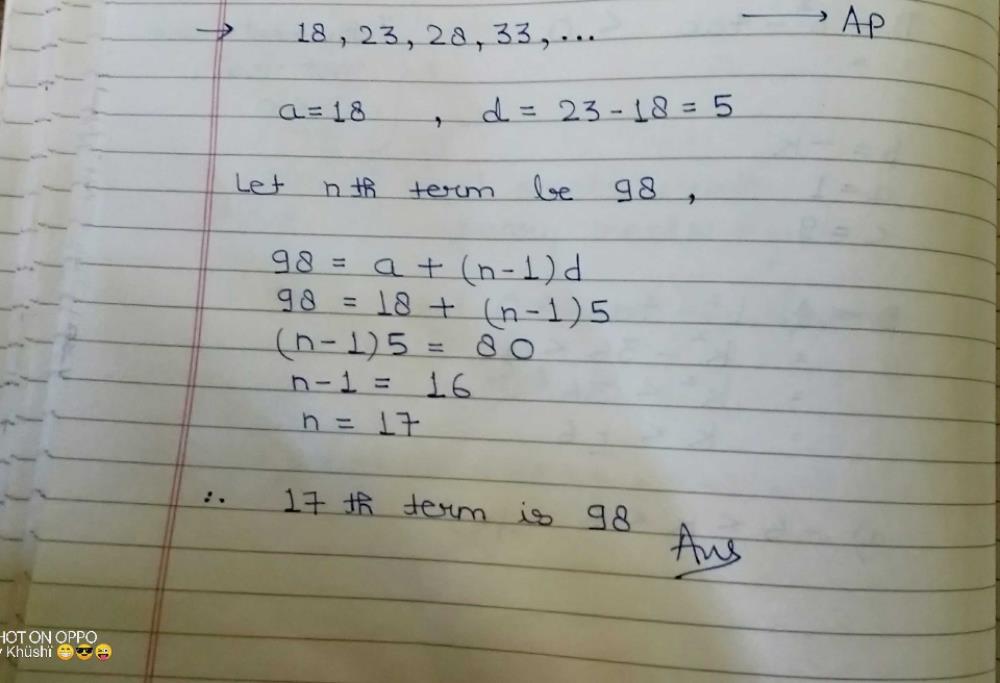 → 18, 23, 28, 33, ... → Ap
a = 18 , d = 23 - 18 = 5
Let nth term be 98 ,
98 = a + (n-1)d
98 = 18 + (n-1)5
(n-1)5 = 80
n-1 = 16
n = 17
∴ 17 th term is 98
Ans
HOT ON OPPO
y Khüshï 😁😎😜